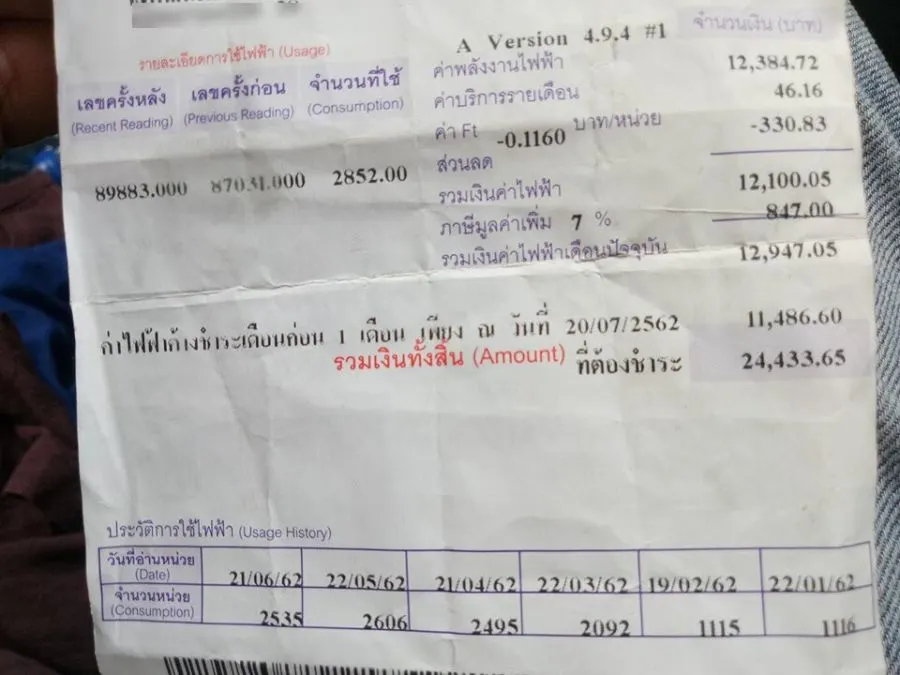 รายละเอียดการใช้ไฟฟ้า (Usage)
เลขครั้งหลัง เลขครั้งก่อน จำนวนที่ใช้
(Recent Reading) (Previous Reading) (Consumption)
89883.000 87031.000 2852.00
A Version 4.9.4 #1 จำนวนเงิน (บาท)
ค่าพลังงานไฟฟ้า 12,384.72
ค่าบริการรายเดือน 46.16
ค่า Ft -0.1160 บาท/หน่วย -330.83
ส่วนลด
รวมเงินค่าไฟฟ้า 12,100.05
ภาษีมูลค่าเพิ่ม 7 % 847.00
รวมเงินค่าไฟฟ้าเดือนปัจจุบัน 12,947.05
ค่าไฟฟ้าค้างชำระเดือนก่อน 1 เดือน เพียง ณ วันที่ 20/07/2562 11,486.60
รวมเงินทั้งสิ้น (Amount) ที่ต้องชำระ 24,433.65
ประวัติการใช้ไฟฟ้า (Usage History)
วันที่อ่านหน่วย (Date) 21/06/62 22/05/62 21/04/62 22/03/62 19/02/62 22/01/62
จำนวนหน่วย (Consumption) 2535 2606 2495 2092 1115 1116